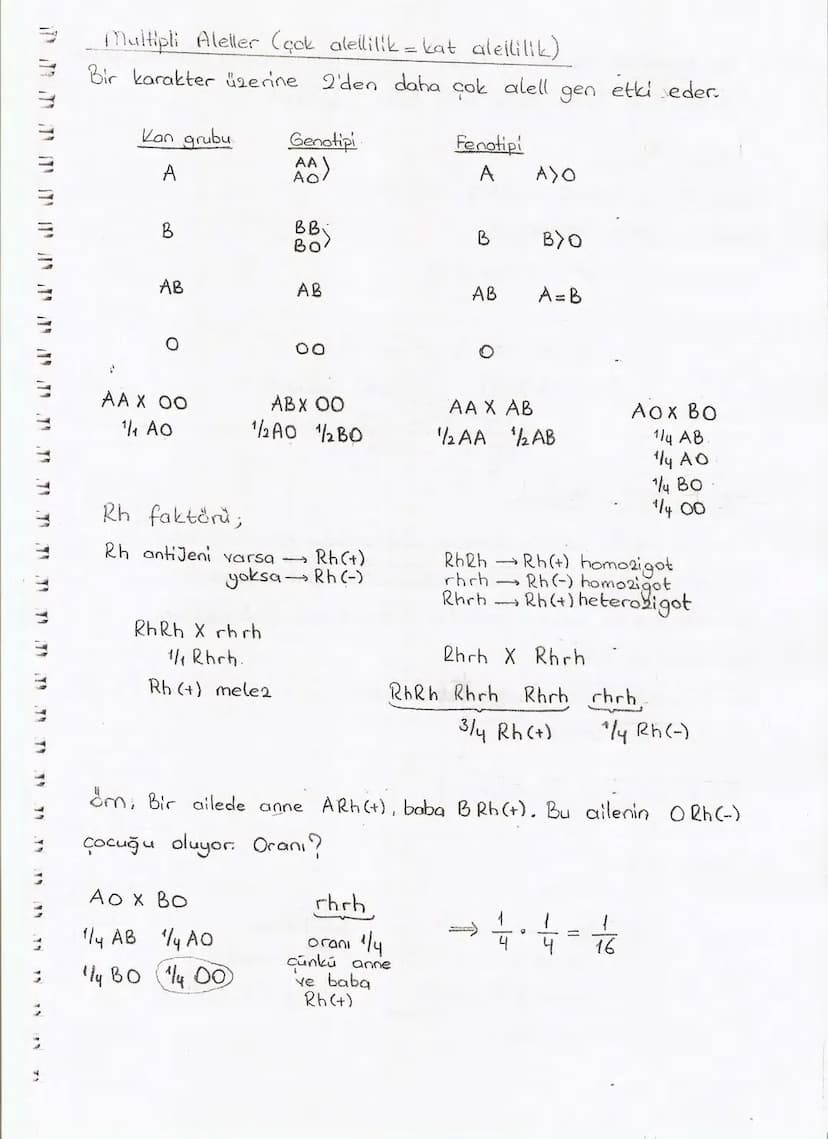 Multipli Aleller (çok alellilik = kat alellilik)
Bir karakter üzerine 2'den daha çok alell gen etki eder.
Kan grubu Genotipi Fenotipi
A AA AO > A A>O
B BB BO > B B>O
AB AB AB A=B
O OO O
AA X OO ABX OO AA X AB AOX BO
1/1 AO 1/2AO 1/2BO 1/2AA 1/2AB 1/4 AB
1/4 AO
1/4 BO
1/4 OO
Rh faktörü;
Rh antijeni varsa → Rh(+)
yoksa → Rh(-)
RhRh → Rh(+) homozigot
rhrh → Rh(-) homozigot
Rhrh → Rh(+) heterozigot
RhRh X rhrh
1/1 Rhrh.
Rh(+) melez
Rhrh X Rhrh
RhRh Rhrh Rhrh rhrh
3/4 Rh(+) 1/4 Rh(-)
Örn; Bir ailede anne ARh(+), baba B Rh(+). Bu ailenin ORh(-)
çocuğu oluyor. Oranı?
AO X BO
1/4 AB 1/4 AO
1/4 BO 1/4 OO
rhrh
oranı 1/4
çünkü anne
ve baba
Rh(+)
⇒ 1/4 · 1/4 = 1/16